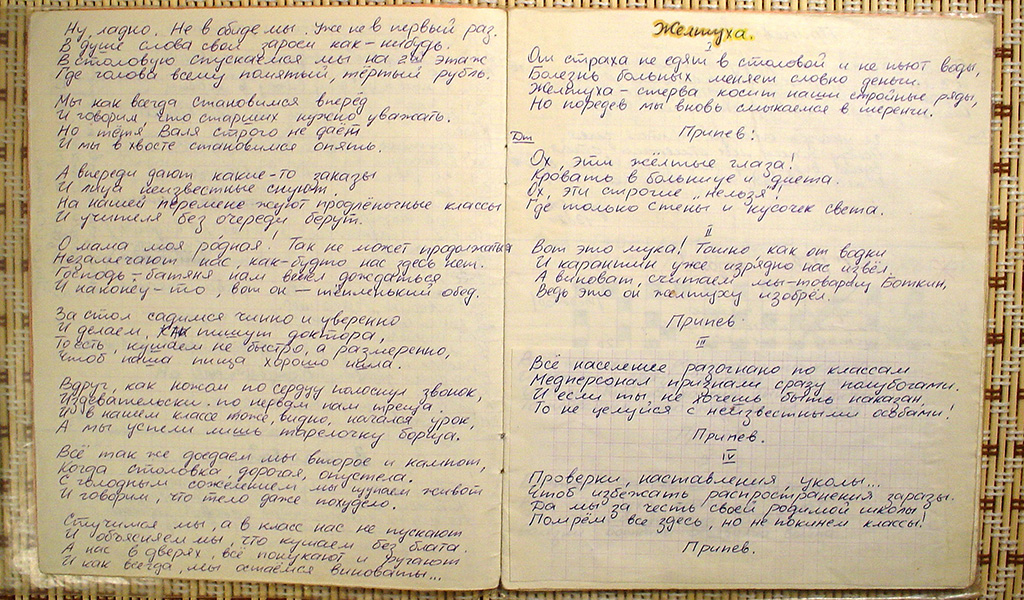 Ну, ладно. Не в обиде мы. Уже не в первый раз.
В душе слова свои зароем как-нибудь.
В столовую спускаемся мы на 2ой этаж
Где голова всему помятый, тёртый рубль.
Мы как всегда становимся вперёд
И говорим что старших нужно уважать.
Но тётя Валя строго не даёт
И мы в хвосте становимся опять.
А впереди дают какие-то заказы
И лица неизвестные снуют.
На нашей перемене жуют продлёночные классы
И учителя без очереди берут.
О мама моя родная. Так не может продолжаться
Незамечают нас, как-будто нас здесь нет.
Господь-батяня нам велел дождаться
И наконец-то, вот он - тёпленький обед.
За стол садимся чинно и уверенно
И делаем, как пишут доктора,
То есть, кушаем не быстро, а размеренно,
Чтоб наша пища хорошо шла.
Вдруг, как ножом по сердцу полоснул звонок,
Издевательски по нервам нам треща.
И в нашем классе тоже, видно, начался урок,
А мы успели лишь тарелочку борща.
Всё так же доедаем мы второе и компот,
Когда столовка, дорогая, опустела.
С голодным сожелением мы щупаем живот
И говорим, что тело даже похудело.
Стучимся мы, а в класс нас не пускают
И объясняем мы, что кушаем без блата.
А нас в дверях, всё попукают и ругают
И как всегда, мы остаёмся виноваты...
Желтуха.
I
От страха не едят в столовой и не пьют воды,
Болезнь больных меняет словно деньги.
Желтуха - стерва косит наши стройные ряды,
Но поредев мы вновь смыкаемся в шеренги.
Припев:
Dm
Ох, эти жёлтые глаза!
Кровать в больнице и диета.
Ох, эти строгие „нельзя"
Где только стены и кусочек света.
II
Вот это мука! Тошно как от водки
И карантин уже изрядно нас извёл.
А виноват, считаем мы-товарищ Боткин,
Ведь это он желтуху изобрёл.
Припев
III
Всё население разогнано по классам
Медперсонал признали сразу полубогами.
И если ты не хочешь быть наказан,
То не целуйся с неизвестными особами!
Припев.
IV
Проверки, наставления, уколы...
Чтоб избежать распространения заразы.
Да мы за честь своей родимой школы
Помрём все здесь, но не покинем классы!
Припев.